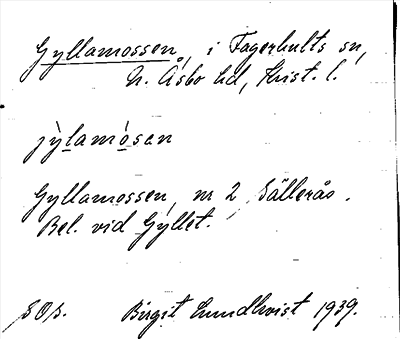 Gyllamossen, i Fagerhults sn,
N. Åsbo hd, Krist. l.
jỳlamósan
Gyllamossen, nr 2 Sällerås.
Bel. vid Gyllet.
SOS. Birgit Lundkvist 1939.